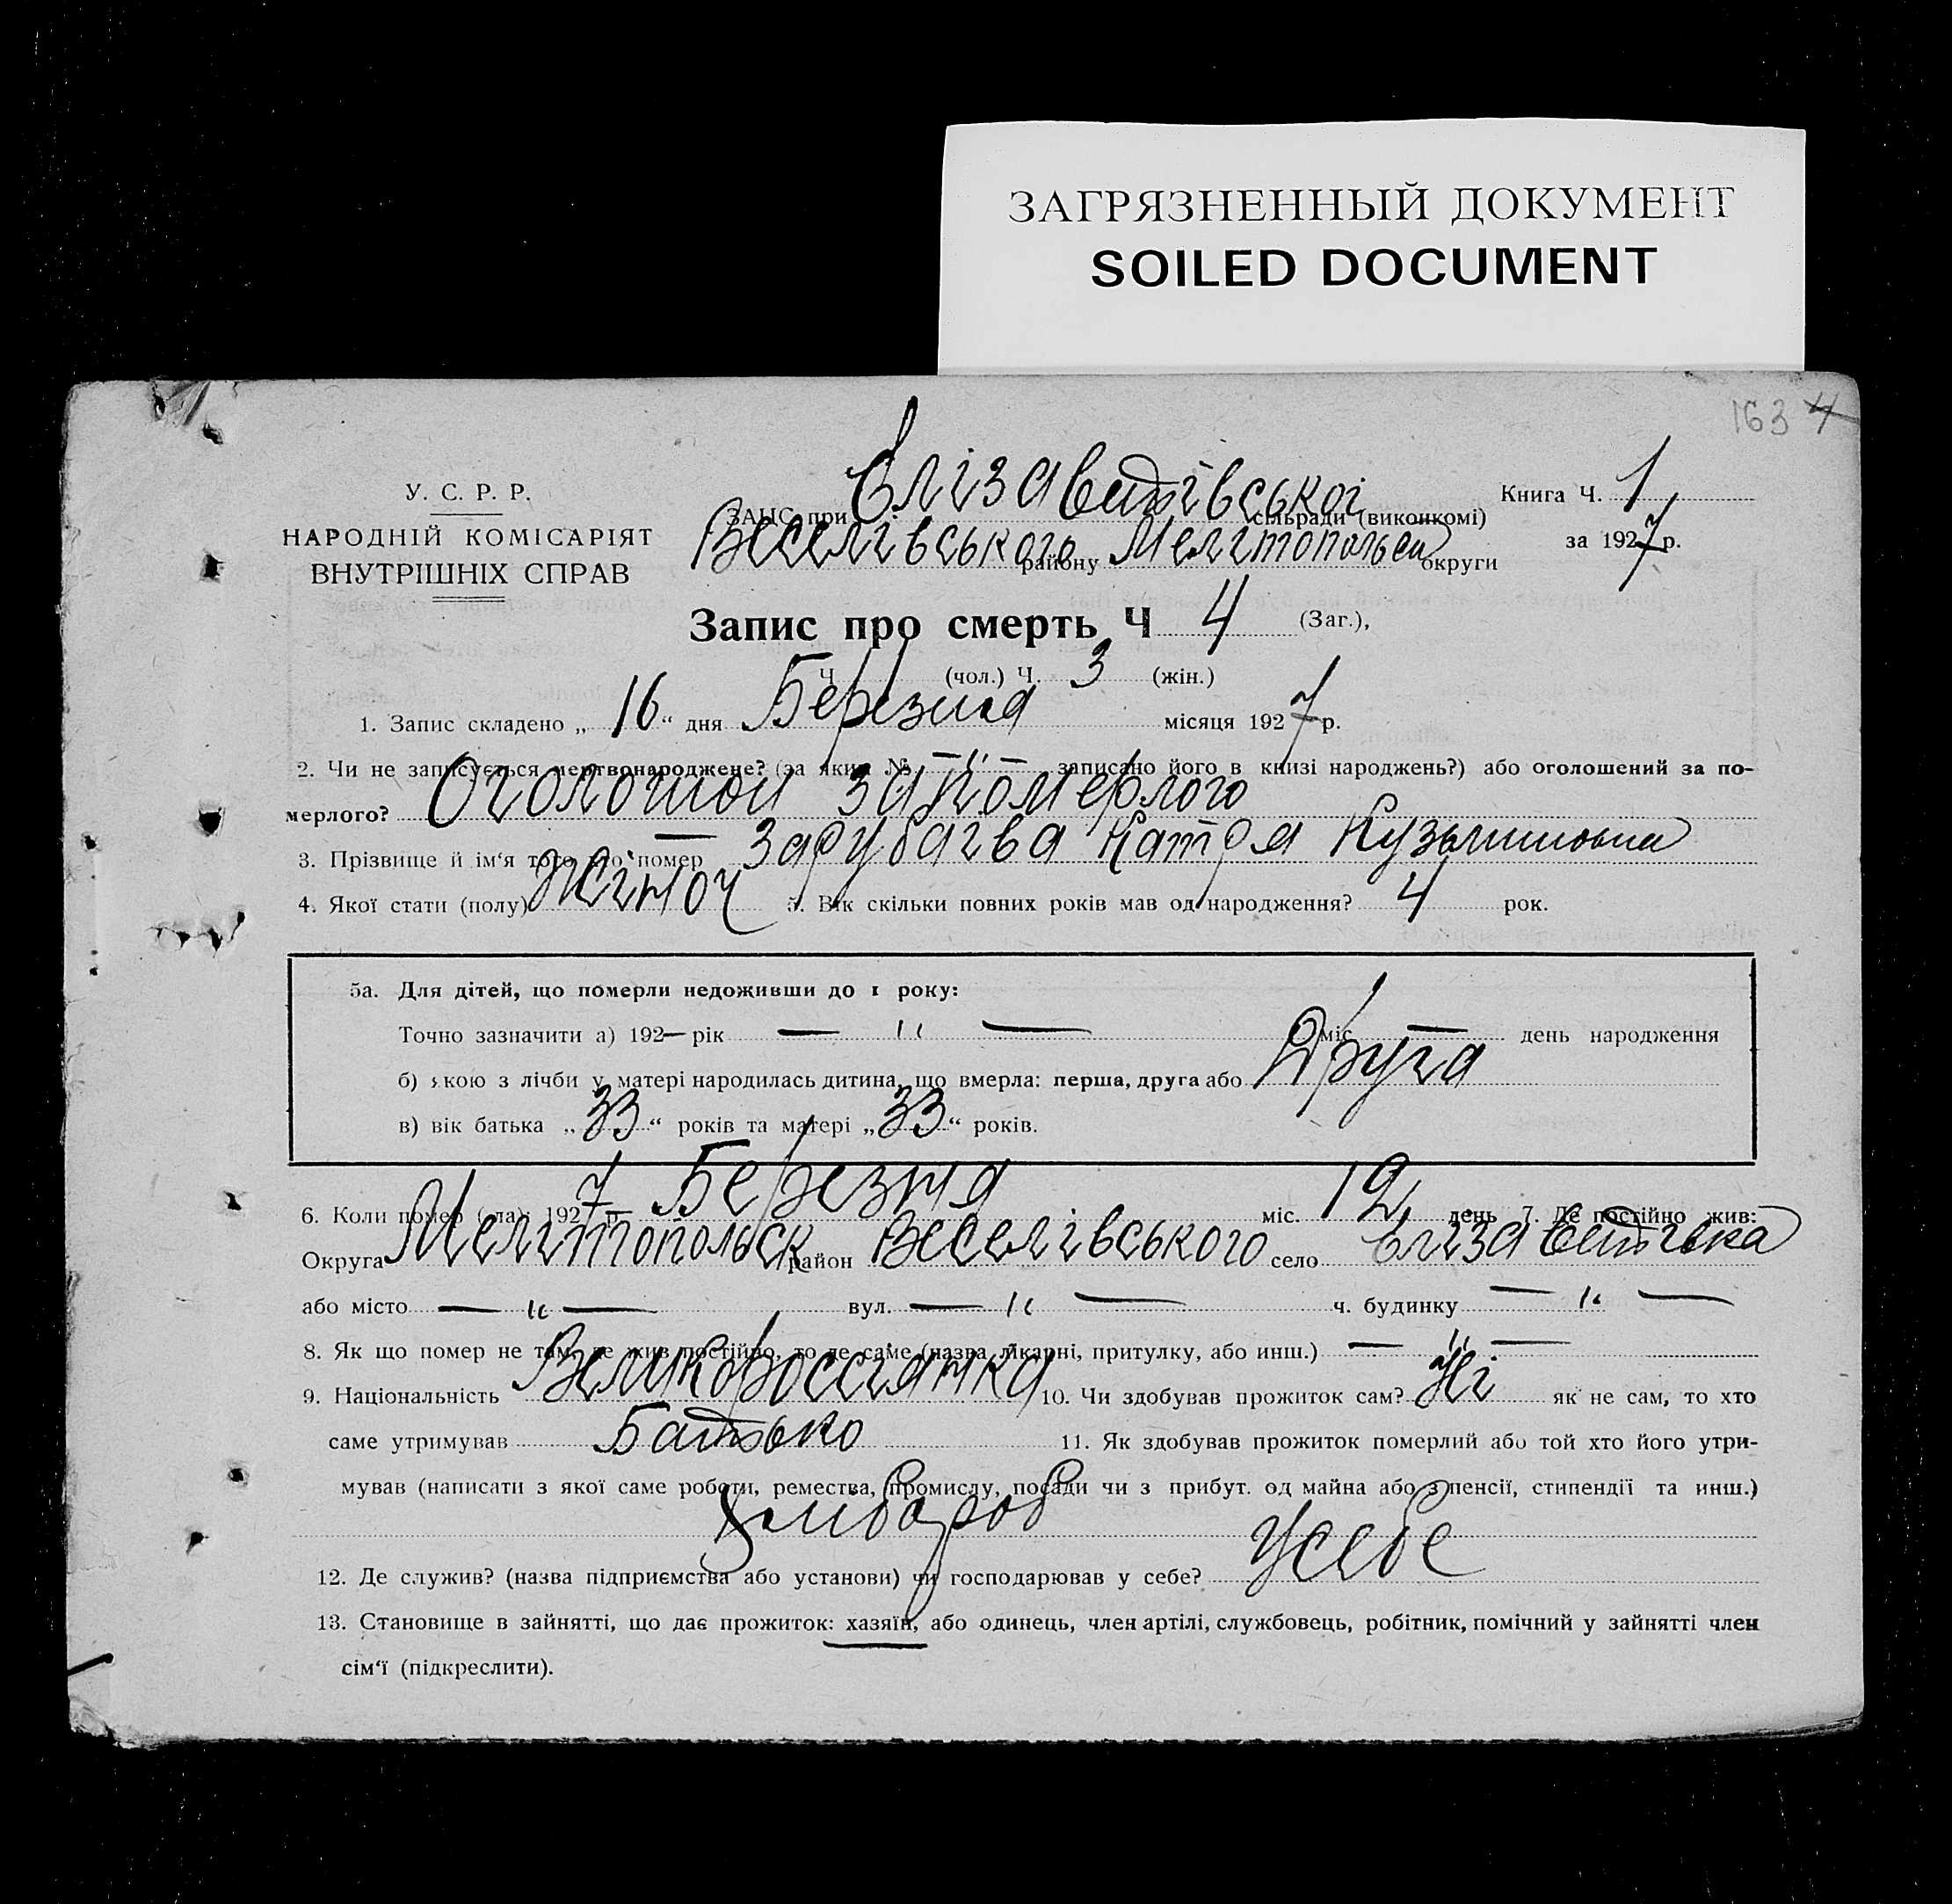 ЗАГРЯЗНЕННЫЙ ДОКУМЕНТ
SOILED DOCUMENT
163 4
У. С. Р. Р.
НАРОДНІЙ КОМІСАРІЯТ
ВНУТРІШНІХ СПРАВ
ЗАПС при Єлізаветівської сільради (виконкомі)
Веселівського району Мелітопольськ округи
Книга Ч. 1
за 1927 р.
Запис про смерть Ч 4 (Заг.),
Ч. (чол.) Ч. 3 (жін.)
1. Запис складено „ 16 “ дня Березня місяця 1927 р.
2. Чи не записується мертвонароджене? (за яким № — " — записано його в книзі народжень?) або оголошений за по-
мерлого? Оголошой за померлого
3. Прізвище й ім‘я того що помер — Зарубаєва Катря Кузьмишовна
4. Якої стати (полу) Жіноч 5. Вік скільки повних років мав од народження? 4 рок.
5а. Для дітей, що померли недоживши до 1 року:
Точно зазначити а) 192— рік — " — міс. — день народження
б) якою з лічби у матері народилась дитина, що вмерла: перша, друга або Друга
в) вік батька „ 33 “ років та матері „ 33 “ років.
6. Коли помер (-ла): 1927 р. Березня міс. 12 день 7. Де постійно жив:
Округа Мелітопольськ район Веселівського село Єлізаветівка
або місто — " — вул. — " — ч. будинку — " —
8. Як що помер не там, де жив постійно, то де саме (назва лікарні, притулку, або инш.) — " —
9. Національність Великоросіянка 10. Чи здобував прожиток сам? Ні як не сам, то хто
саме утримував Батько 11. Як здобував прожиток померлий або той хто його утри-
мував (написати з якої саме роботи, ремества, промислу, посади чи з прибут. од майна або з пенсії, стипендії та инш.)
Хлібороб
12. Де служив? (назва підприємства або установи) чи господарював у себе? Усебе
13. Становище в зайнятті, що дає прожиток: хазяїн, або одинець, член артілі, службовець, робітник, помічний у зайнятті член
сім‘ї (підкреслити).